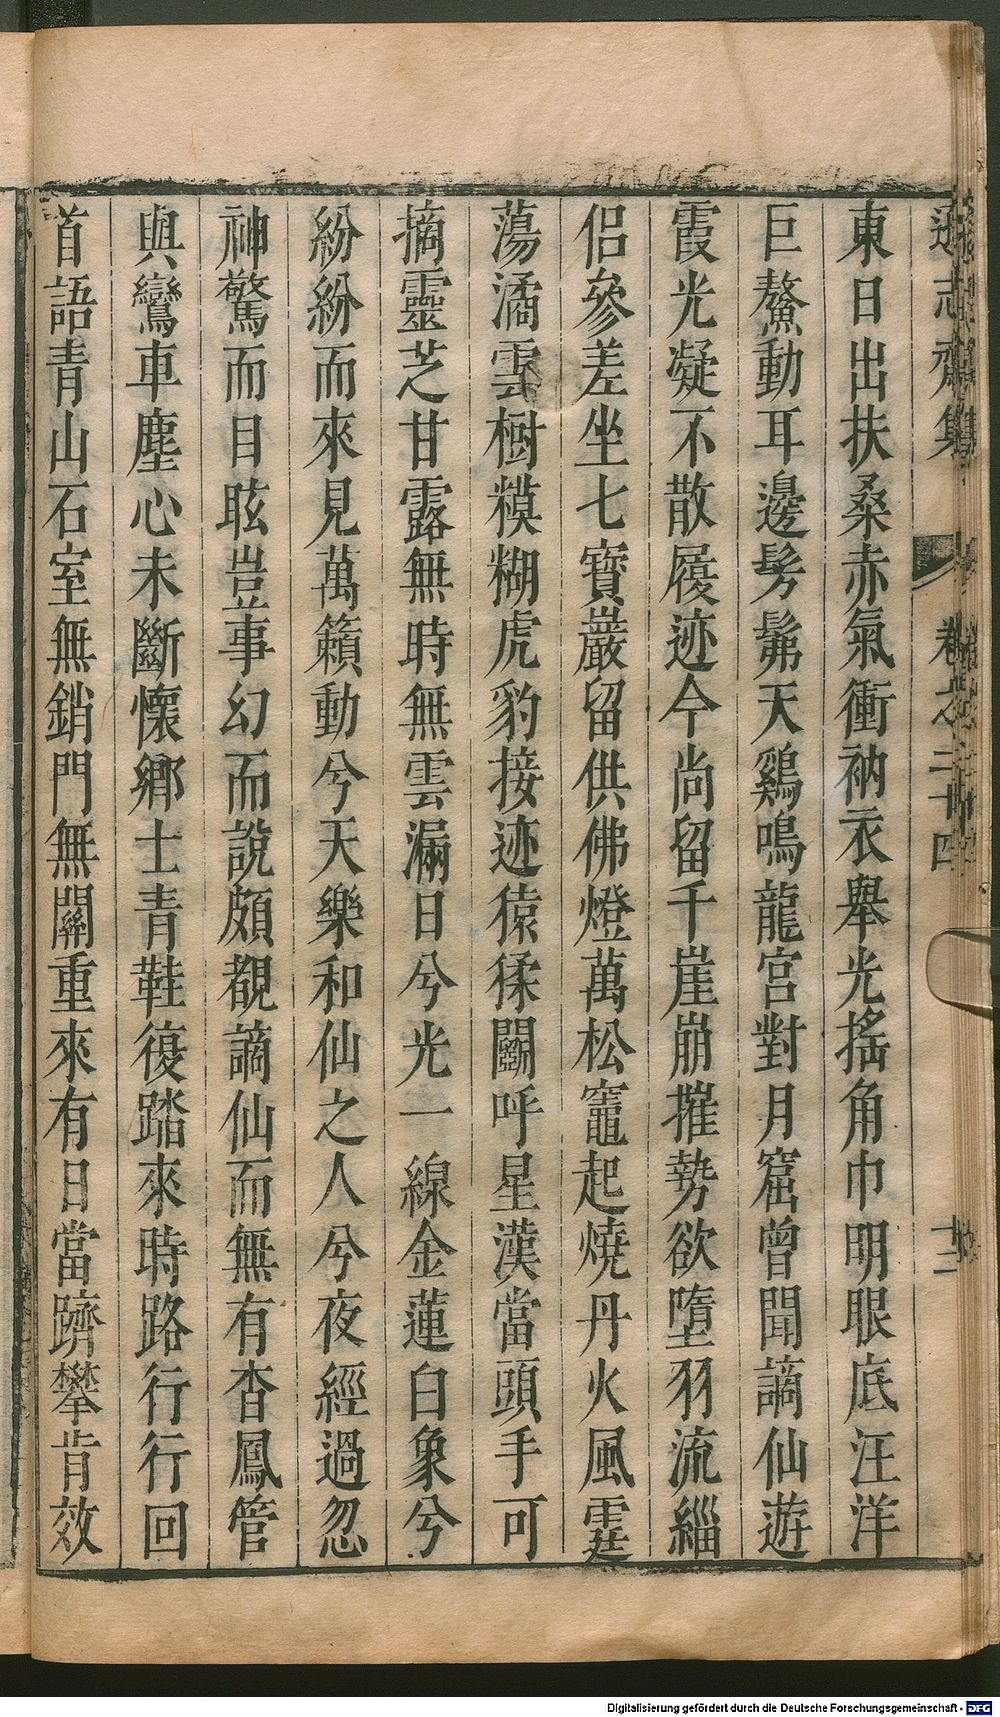 遜志齋集 卷之二十四 十二
東日出扶桑赤氣衝衲衣舉光搖角巾明眼底汪洋
巨鰲動耳邊髣髴天鷄鳴龍宮對月窟曾聞謫仙遊
霞光凝不散履迹今尚留千崖崩摧勢欲墮羽流緇
侶參差坐七寶巖留供佛燈萬松竈起燒丹火風霆
蕩潏雲樹糢糊虎豹接迹猿猱闞呼星漢當頭手可
摘靈芝甘露無時無雲漏日兮光一線金蓮白象兮
紛紛而來見萬籟動兮天樂和仙之人兮夜經過忽
神驚而目眩豈事幻而說頗覩謫仙而無有杳鳳管
與鸞車塵心未斷懷鄉土青鞋復踏來時路行行回
首語青山石室無銷門無關重來有日當躋攀肯效
Digitalisierung gefördert durch die Deutsche Forschungsgemeinschaft - DFG